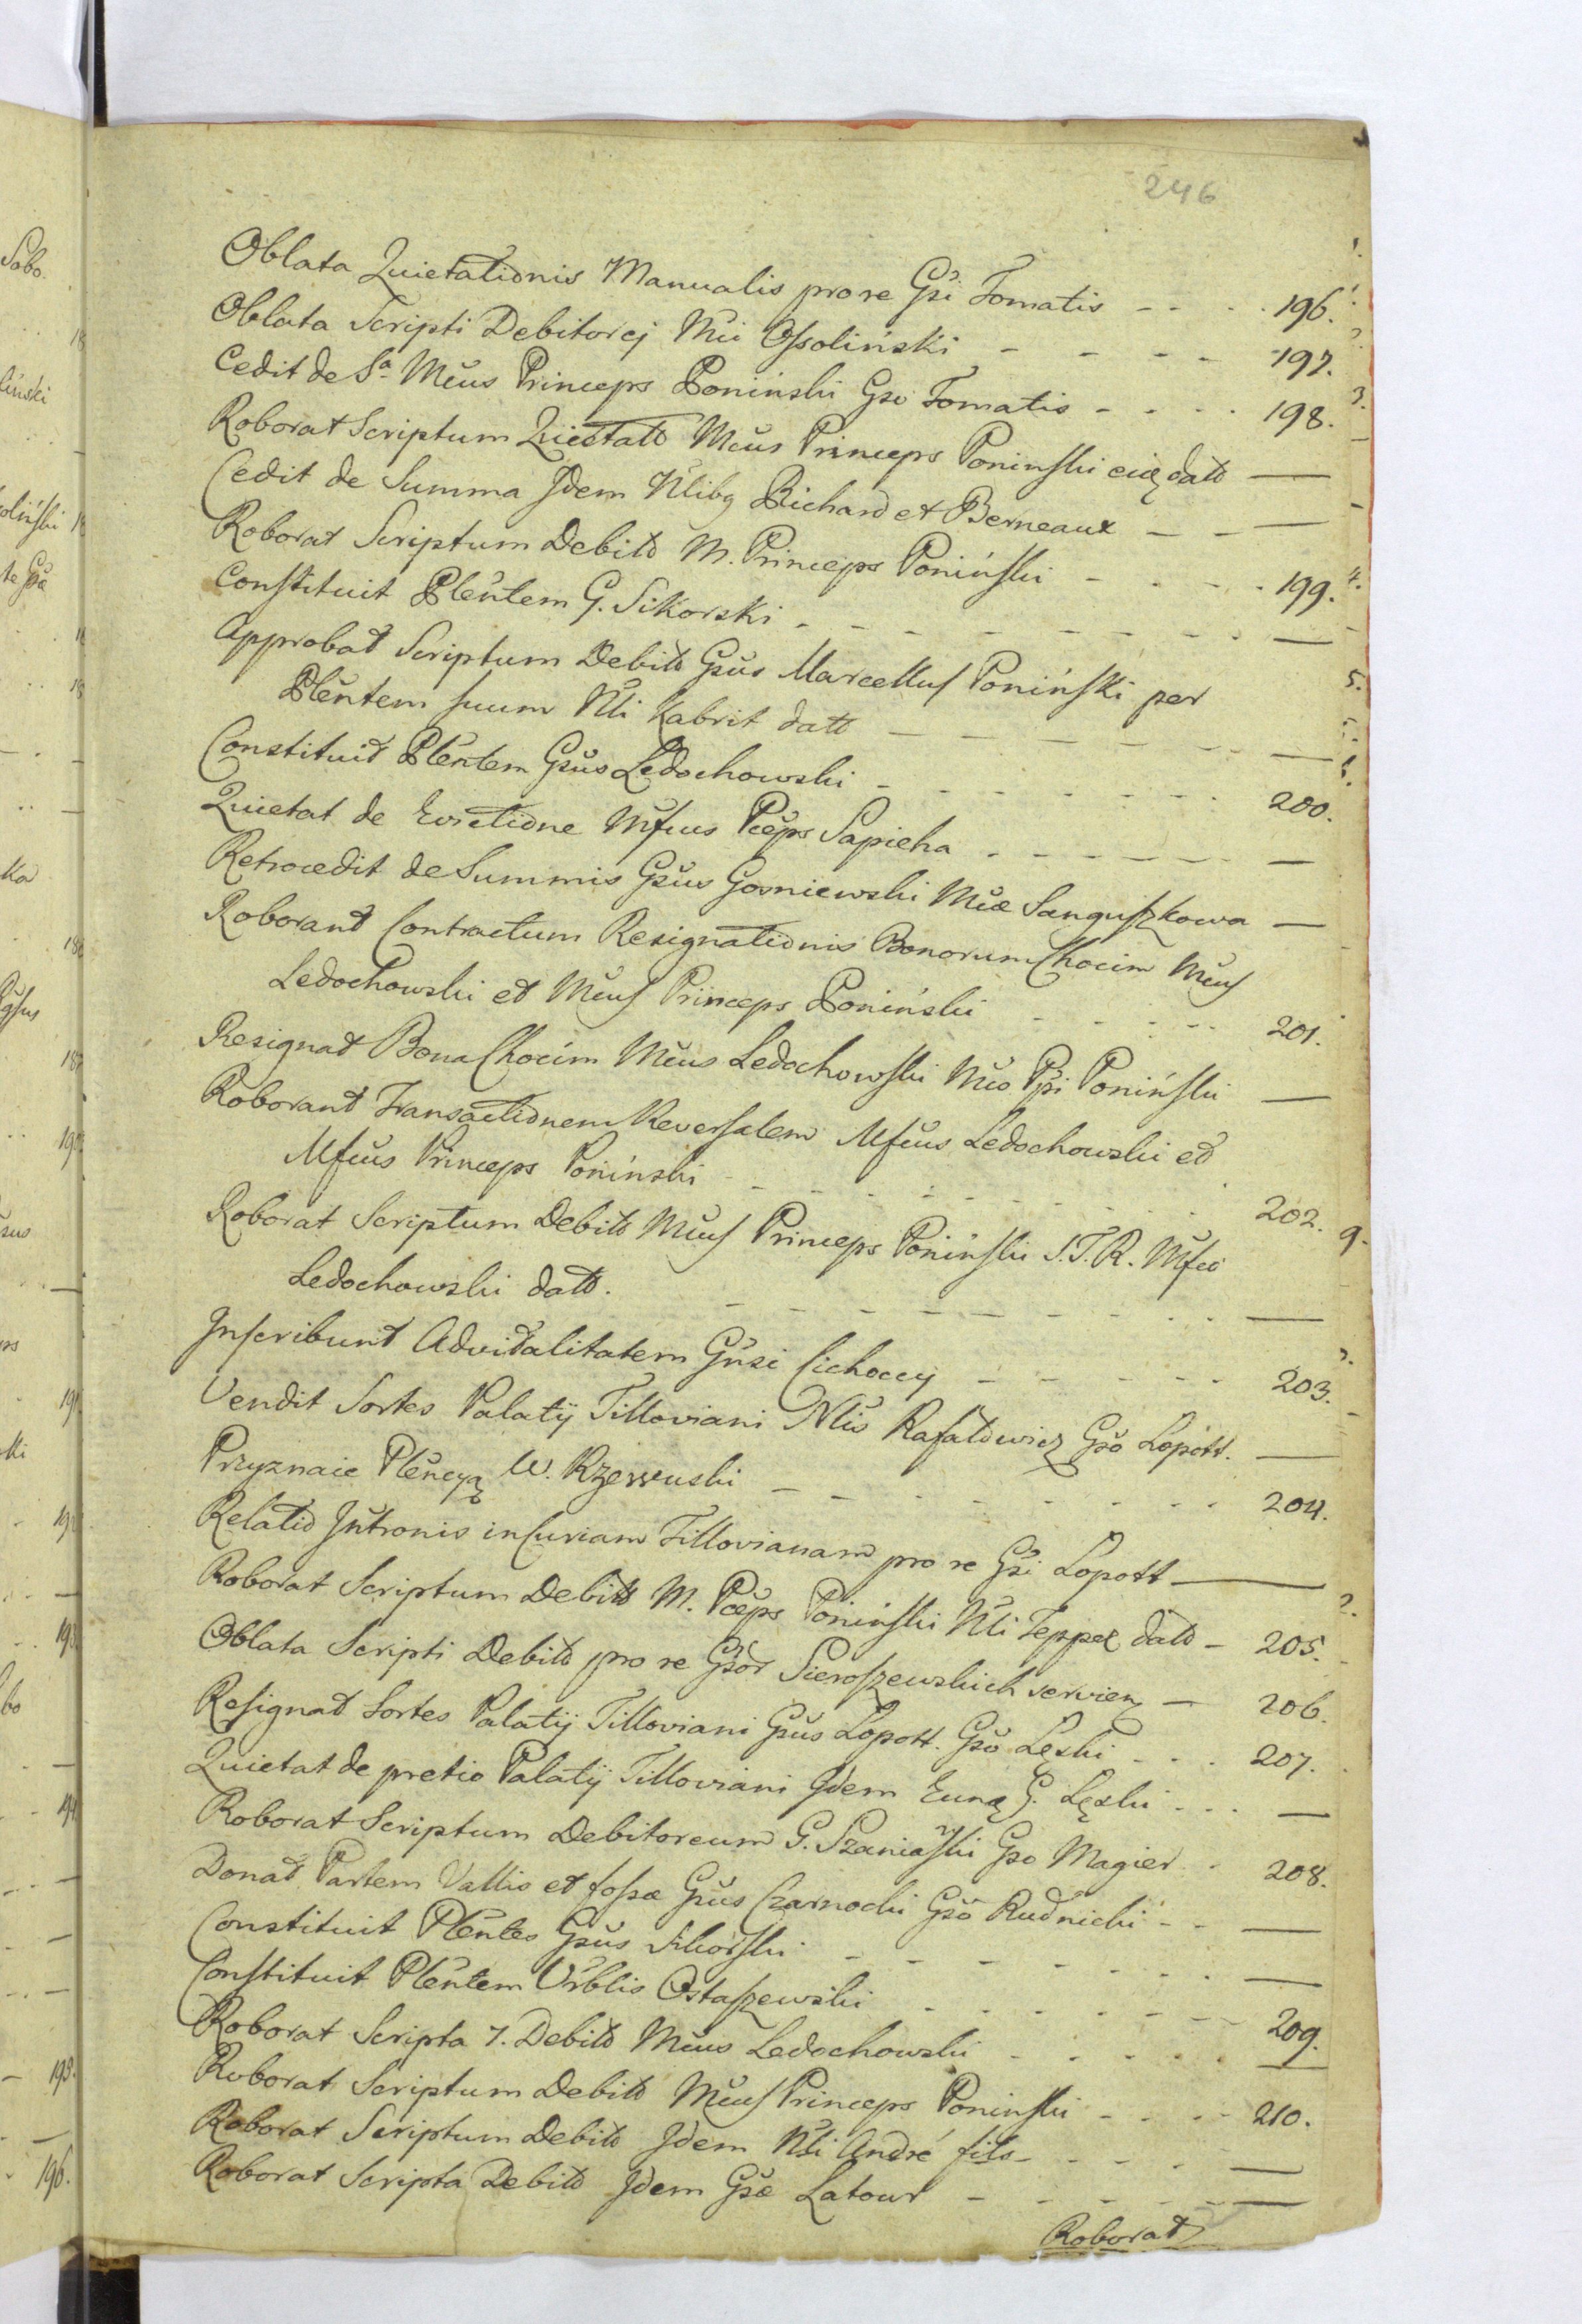 246
Oblata Quietationis Manualis pro re Gsi Tomatis - - - 196.
Oblata Scripti Debitorej Mci Ossoliński - - - - 197.
Cedit de Sa Mcus Princeps Poninski Gso Tomatis - - - 198.
Roborat Scriptum Quietato Mcus Princeps Poninski eidę dato —
Cedit de Summa Idem Nlibq Richard et Berneaux — —
Roborat Scriptum Debito M. Princeps Poniński - - - 199.
Constituit Plentem G. Sikorski - - - - - - —
Approbat Scriptum Debito Gsus Marcellus Poniński per
Plentem suum Nli Kabrit dato - - - - - —
Constituit Plentem Gsus Ledochowski - - - - - 200.
Quietat de Evictione Mfcus Pceps Sapieha - - - - - —
Retrocedit de Summis Gsus Gosniewski Mcæ Sanguszkowa —
Roborant Contractum Resignationis Bonorum Chocim Mcus
Ledochowski et Mcus Princeps Poniński - - - - 201.
Resignat Bona Chocim Mcus Ledochowski Mco Ppi Poniński —
Roborant Transactionem Reversalem Mfcus Ledochowski et
Mfcus Princeps Poninski - - - - - - - 202.
Roborat Scriptum Debito Mcus Princeps Poniński S.T.R. Mfco
Ledochowski dato. - - - - - - - —
Inscribunt Advitalitatem Gnsi Cichoccy - - - - - 203.
Vendit Sortes Palatij Tilloviani Nlis Rafałowicz Gso Lopott. —
Przyznaie Plencyą W. Rzewuski - - - - - - - 204.
Relatio Intronis in Curiam Tillovianam pro re Gsi Lopott —
Roborat Scriptum Debito M. Pceps Poniński Nli Tepper dato - 205.
Oblata Scripti Debito pro re Gsor Sieroszewskich servien — 206.
Resignat Sortes Palatij Tilloviani Gsus Lopott. Gso Lęski - - - 207.
Quietat de pretio Palatij Tilloviani Idem Eunę G. Lęski - - - —
Roborat Scriptum Debitoreum G. Szaniawski Gso Magier - 208.
Donat Partem Vallis et fossæ Gsus Czarnocki Gso Rudnicki - - —
Constituit Plentes Gsus Sikorski - - - - - - - —
Constituit Plentem Urblis Ostaszewski - - - - - - 209.
Roborat Scripta 7. Debito Mcus Ledochowski - - - - - —
Roborat Scriptum Debito Mcus Princeps Poninski - - - - 210.
Roborat Scriptum Debito Idem Nli André fils - - - - —
Roborat Scripta Debito Idem Gsæ Latour - - - - - —
Roborat